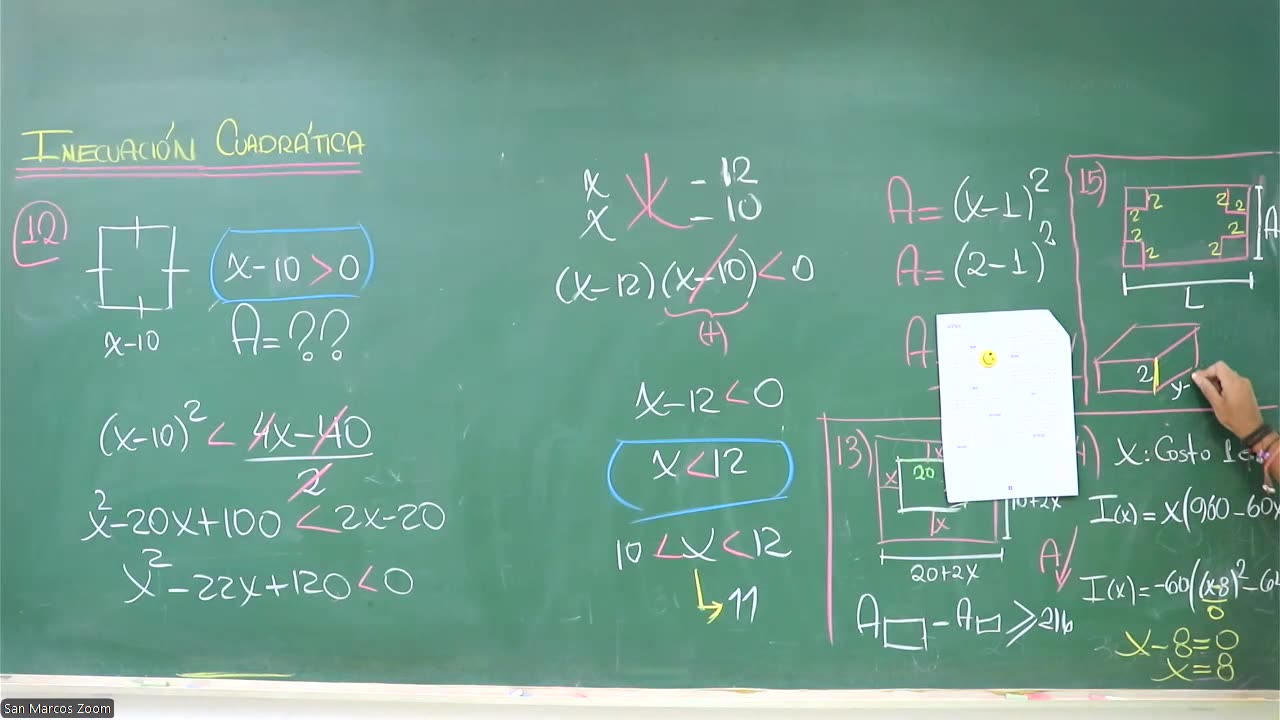 INECUACIÓN CUADRÁTICA
12
x-10 > 0
x-10
A = ??
(x-10)² < 4x-40
2
x²-20x+100 < 2x-20
x²-22x+120 < 0
x -12
x -10
(x-12)(x-10) < 0
(+)
x-12 < 0
x < 12
10 < x < 12
11
A = (x-1)²
A = (2-1)²
A
15)
2 2 2 2
2 2
2 2
A
L
2
y-
13)
1x
x
20
1x
10+2x
20+2x
A□ - A□ ≥ 216
A
) X: Costo
I(x) = x(960-60x
I(x) = -60((x-8)²-64
0
x-8=0
x=8
San Marcos Zoom